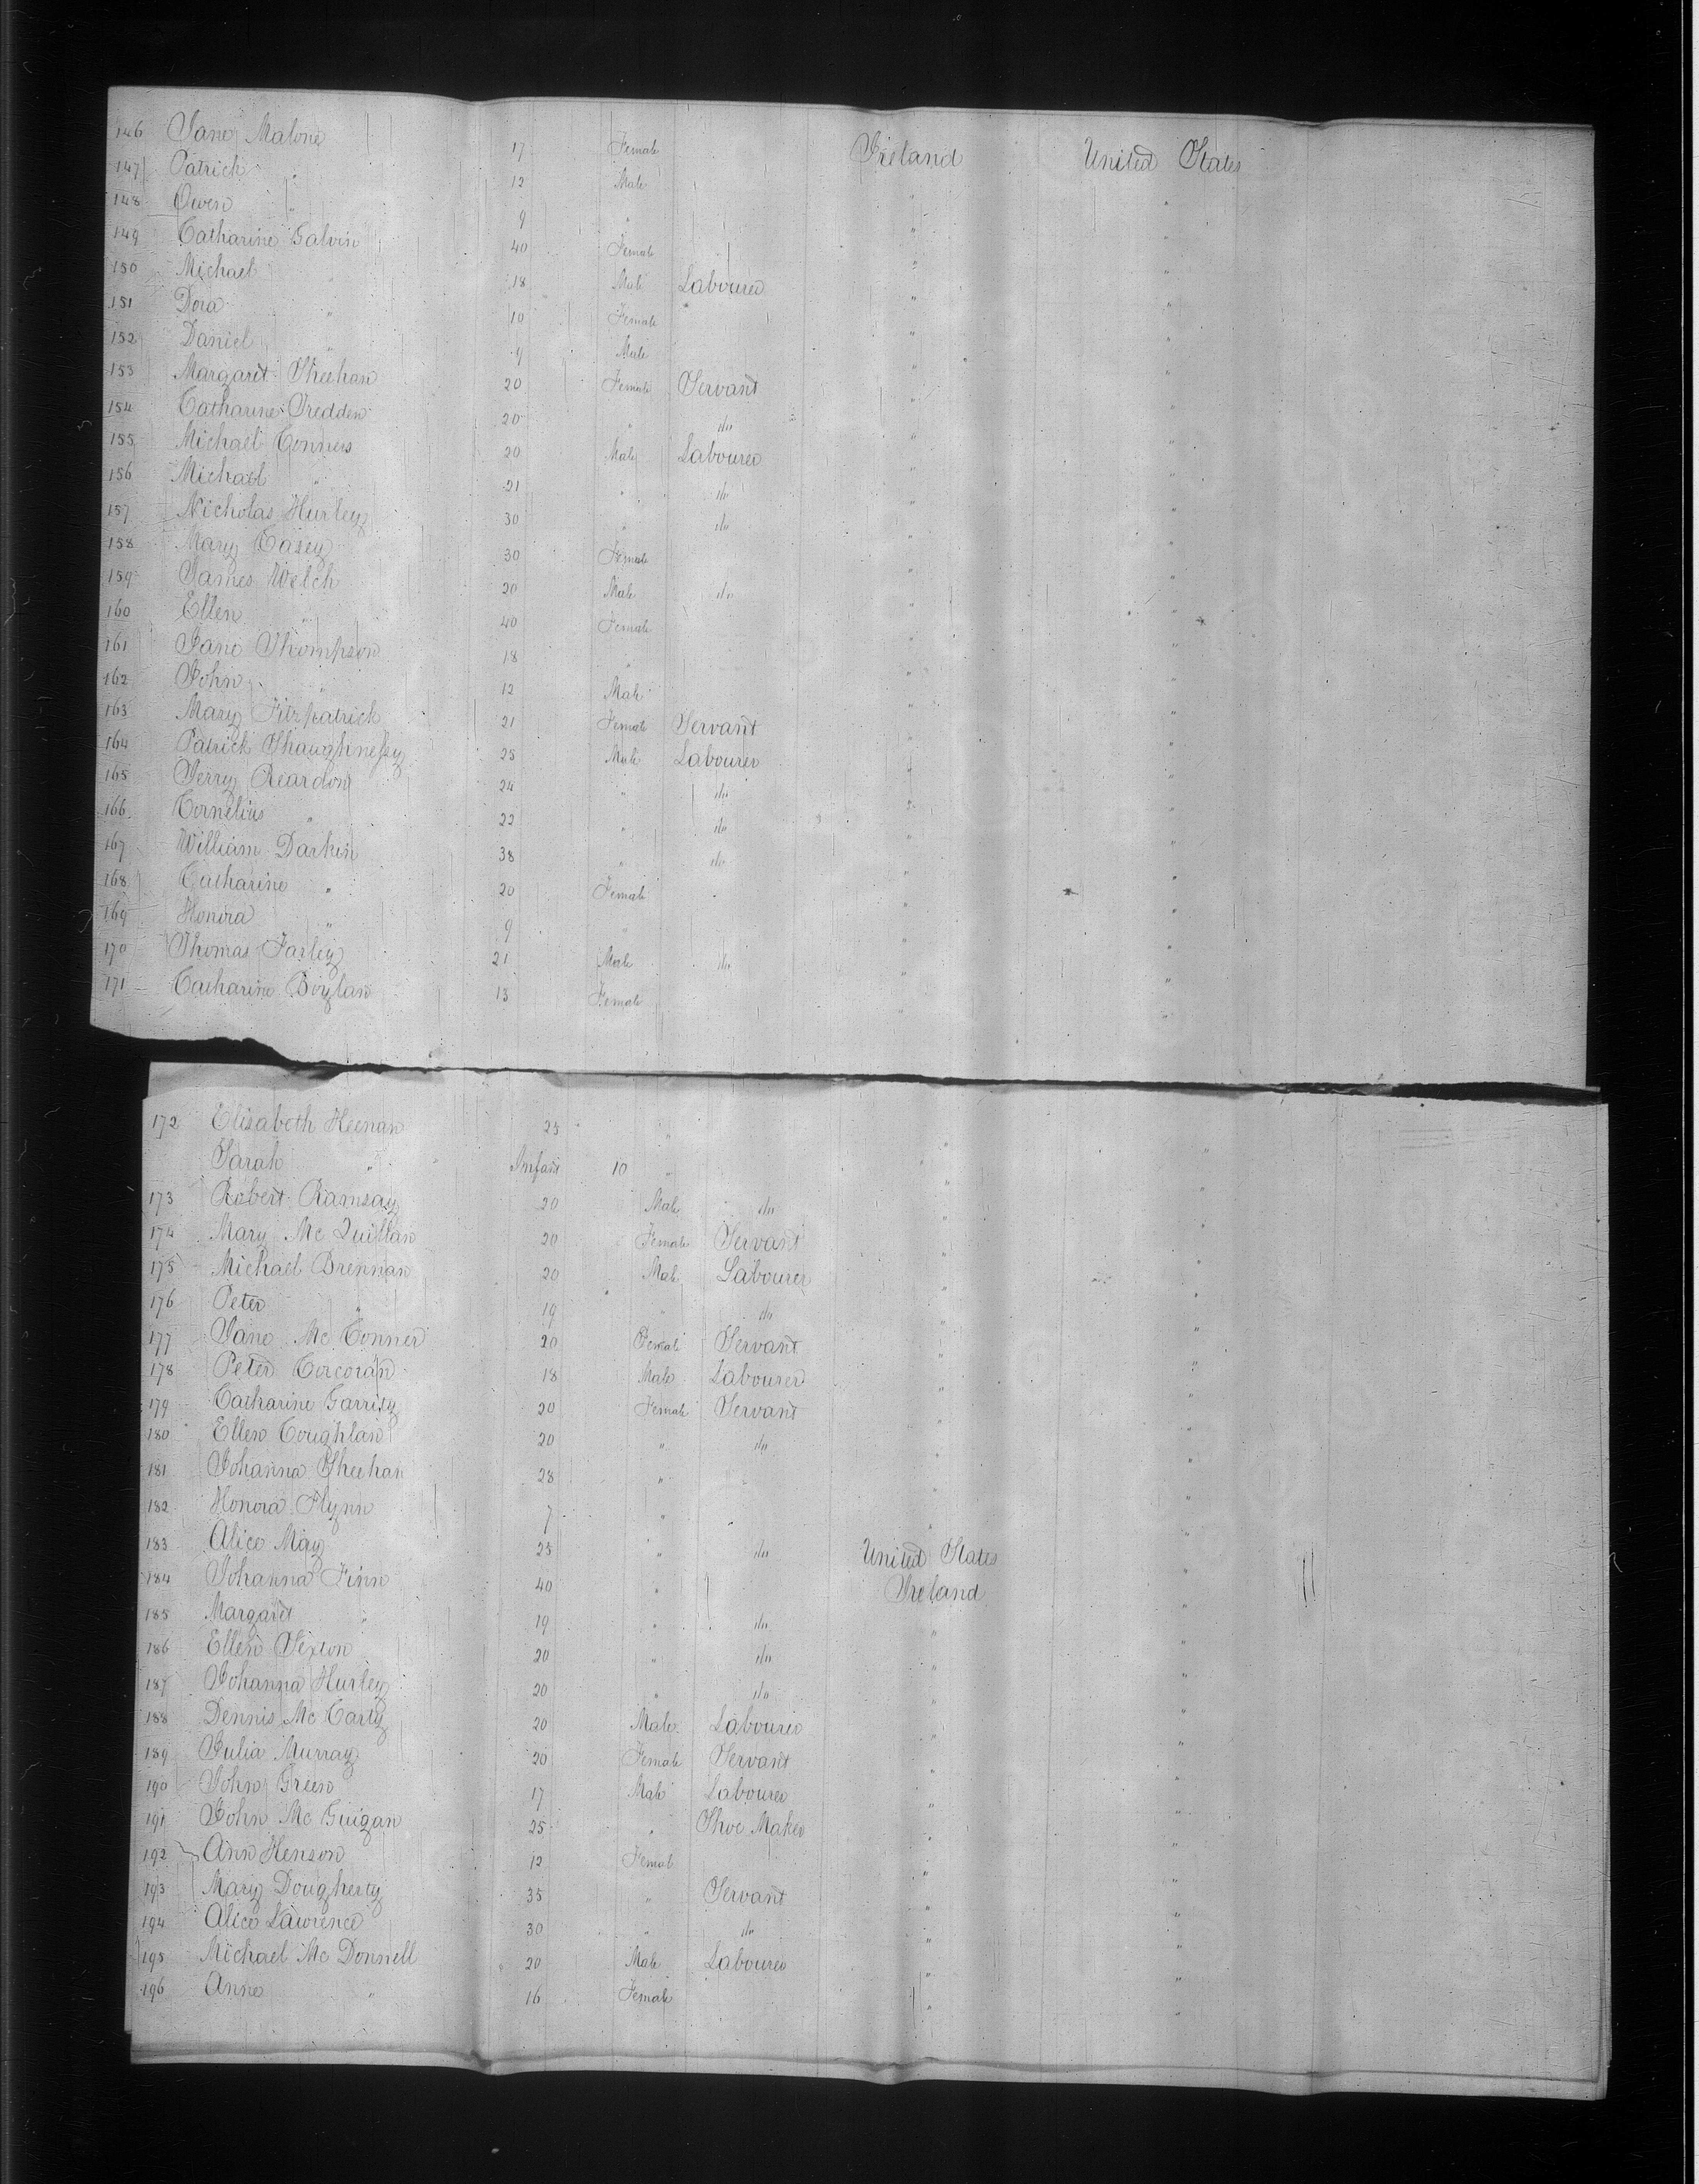 146 Jane Malone 17 Female Ireland United States
147 Patrick " 12 Male " "
148 Owen " 9 " " "
149 Catharine Galvin 40 Female " "
150 Michael " 18 Male Labourer " "
151 Dora " 10 Female " "
152 Daniel " 9 Male " "
153 Margaret Sheehan 20 Female Servant " "
154 Catharine 20 " do " "
155 Michael Conners 20 Male Labourer " "
156 Michael " 21 " do " "
157 Nicholas Hurley 30 " do " "
158 Mary Casey 30 Female " "
159 James Welch 20 Male do " "
160 Ellen " 40 Female " "
161 Jane Thompson 18 " " "
162 John " 12 Male " "
163 Mary Fitzpatrick 21 Female Servant " "
164 Patrick Shaughnessy 25 Male Labourer " "
165 Jerry Reardon 24 " do " "
166 Cornelius " 22 " do " "
167 William Darkin 38 " do " "
168 Catharine " 20 Female " "
169 Honora " 9 " " "
170 Thomas Farley 21 Male do " "
171 Catharine Boylan 13 Female " "
172 Elisabeth Heenan 25 " " "
Sarah " Infant 10 " " "
173 Robert Ramsay 20 Male do " "
174 Mary Mc Quillan 20 Female Servant " "
175 Michael Brennan 20 Male Labourer " "
176 Peter " 19 " do " "
177 Jane Mc Conner 20 Female Servant " "
178 Peter Corcoran 18 Male Labourer " "
179 Catharine Garrity 20 Female Servant " "
180 Ellen Coughlan 20 " do " "
181 Johanna Sheehan 28 " " "
182 Honora Flynn 7 " " "
183 Alice May 25 " do United States "
184 Johanna Finn 40 " Ireland "
185 Margaret " 19 " do " "
186 Ellen Sexton 20 " do " "
187 Johanna Hurley 20 " do " "
188 Dennis Mc Carty 20 Male Labourer " "
189 Julia Murray 20 Female Servant " "
190 John Green 17 Male Labourer " "
191 John Mc Guigan 25 " Shoe Maker " "
192 Ann Henson 12 Female " "
193 Mary Dougherty 35 " Servant " "
194 Alice Lawrence 30 " do " "
195 Michael Mc Donnell 20 Male Labourer " "
196 Anne " 16 Female " "